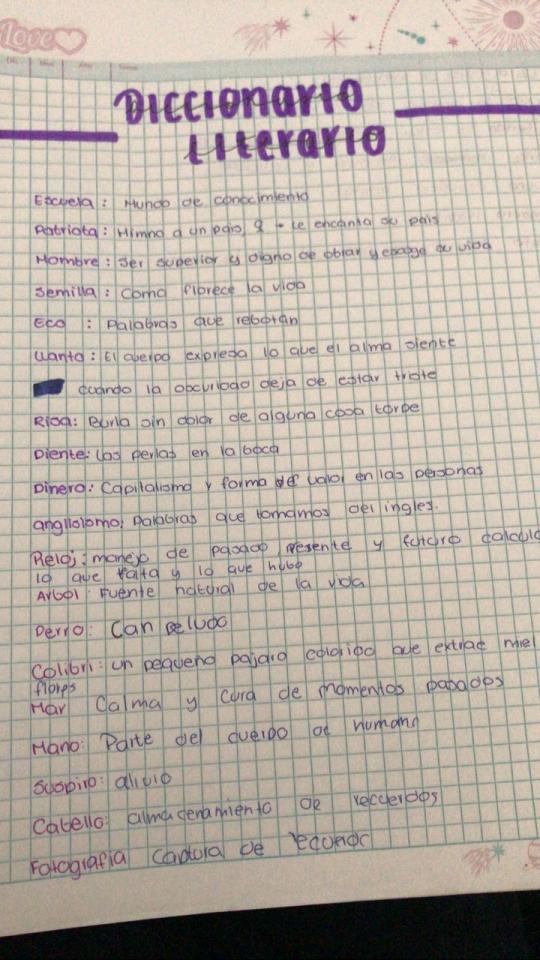 Love
Diccionario
Literario
Escuela: Mundo de conocimiento
Patriota: Himno a un país, le encanta su país
Hombre: Ser superior y digno de obrar y su vida
Semilla: Como florece la vida
Eco : Palabras que rebotan
Llanto: El cuerpo expresa lo que el alma siente
cuando la oscuridad deja de estar triste
Risa: Burla sin dolor de alguna cosa torpe
Diente: Las perlas en la boca
Dinero: Capitalismo y forma de valor en las personas
anglisismo: Palabras que tomamos del ingles.
Reloj: manejo de pasado, presente y futuro calcula
lo que falta y lo que hubo
Arbol: Fuente natural de la vida
Perro: Can peludo
Colibri: un pequeño pajaro colorido que extrae miel
flores
Mar Calma y cura de momentos pasados
Mano: Parte del cuerpo de humano
Suspiro: alivio
Cabello: almacenamiento de recuerdos
Fotografia Captura de